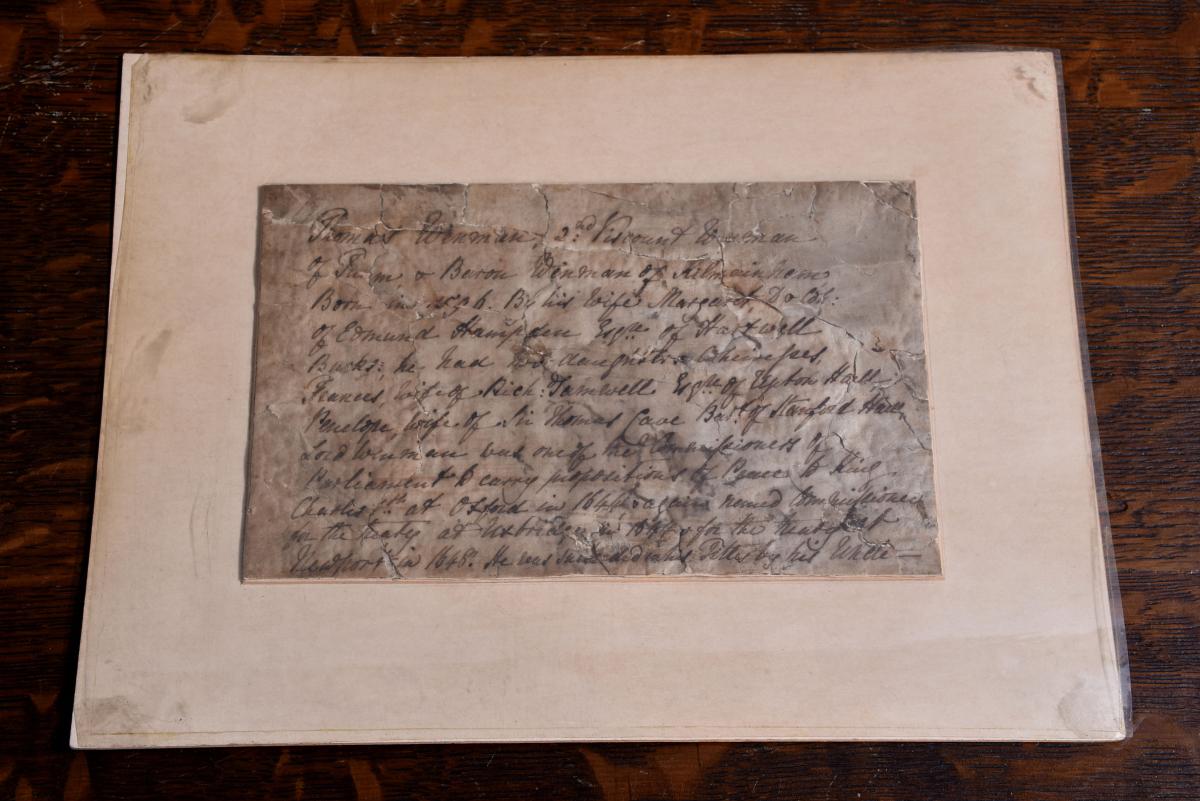 Thomas Wenman, 2.d Viscount Wenman
of Tuam, & Baron Wenman of Kilmainham
Born in 1596. By his Wife Margaret, D. & Cob:
of Edmund Hampden Esq.re of Hartwell
Bucks: he had daughters & Coheiresses
Frances, Wife of Rich: Samwell Esq.re of Upton Hall
Penelope, Wife of Sir Thomas Cave Bar.t of Stanford Hall,
Lord Wenman was one of the Commissioners of
Parliament to carry propositions of Peace to King
Charles 1.st at Oxford in 1644 & again named Commissioner
in the treaty at Uxbridge in & for the treaty at
Newport in 1648. He was succeeded in his Titles by his Uncle —